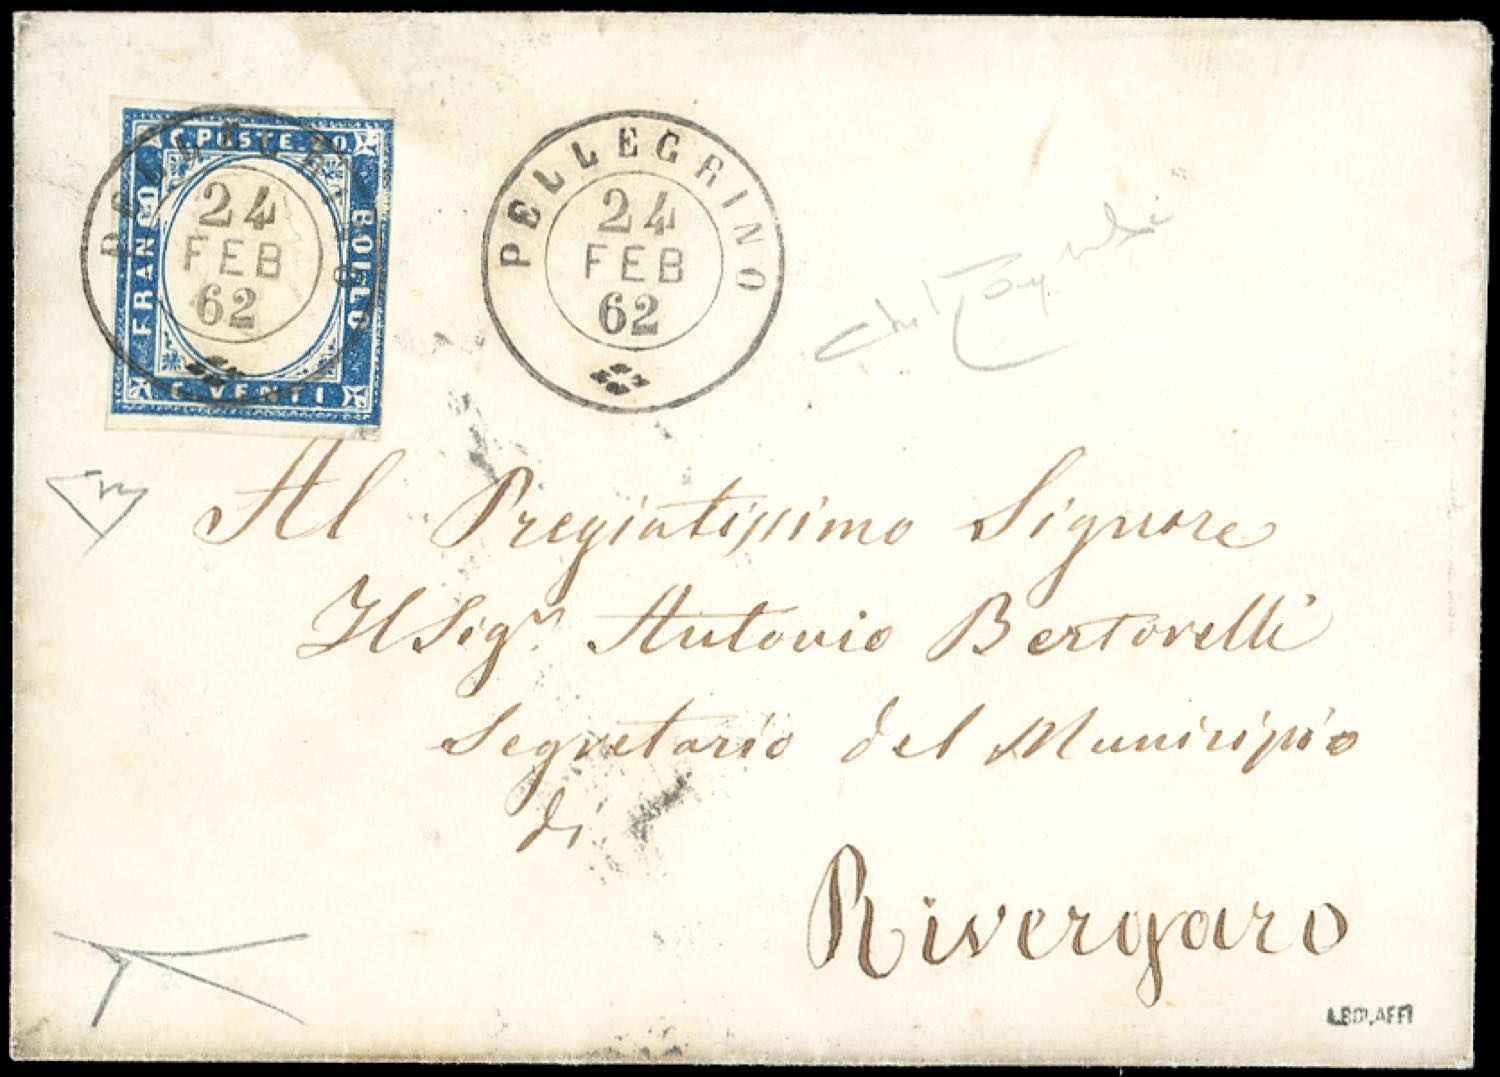 C. POSTE. 20
FRANCO
BOLLO
C. VENTI
PELLEGRINO
24
FEB
62
PELLEGRINO
24
FEB
62
Al Pregiatissimo Signore
Il Sigr. Antonio Bertorelli
Segretario del Municipio
di
Rivergaro
A. BOLAFFI